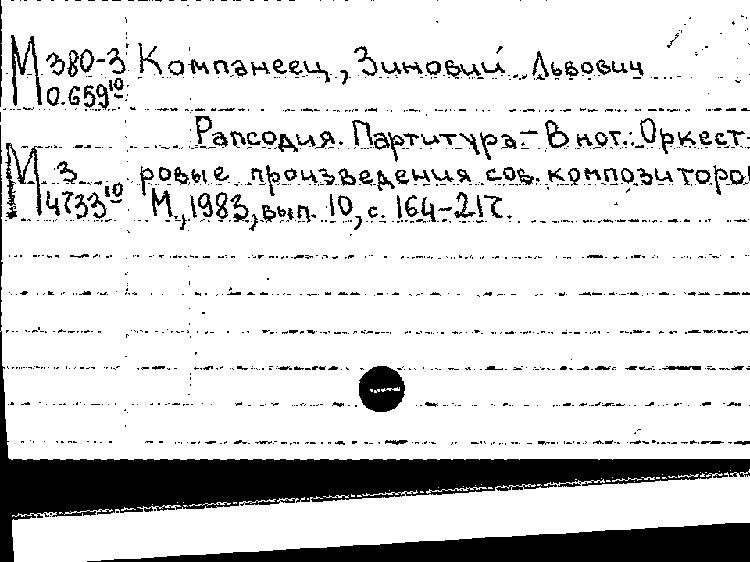 М 380-3 Компанеец, Зиновий Львович
0.659¹⁰
Рапсодия. Партитура.- В нот.: Оркест-
М 3 ровые произведения сов. композиторо
4733¹⁰ М., 1983, вып. 10, с. 164-217.